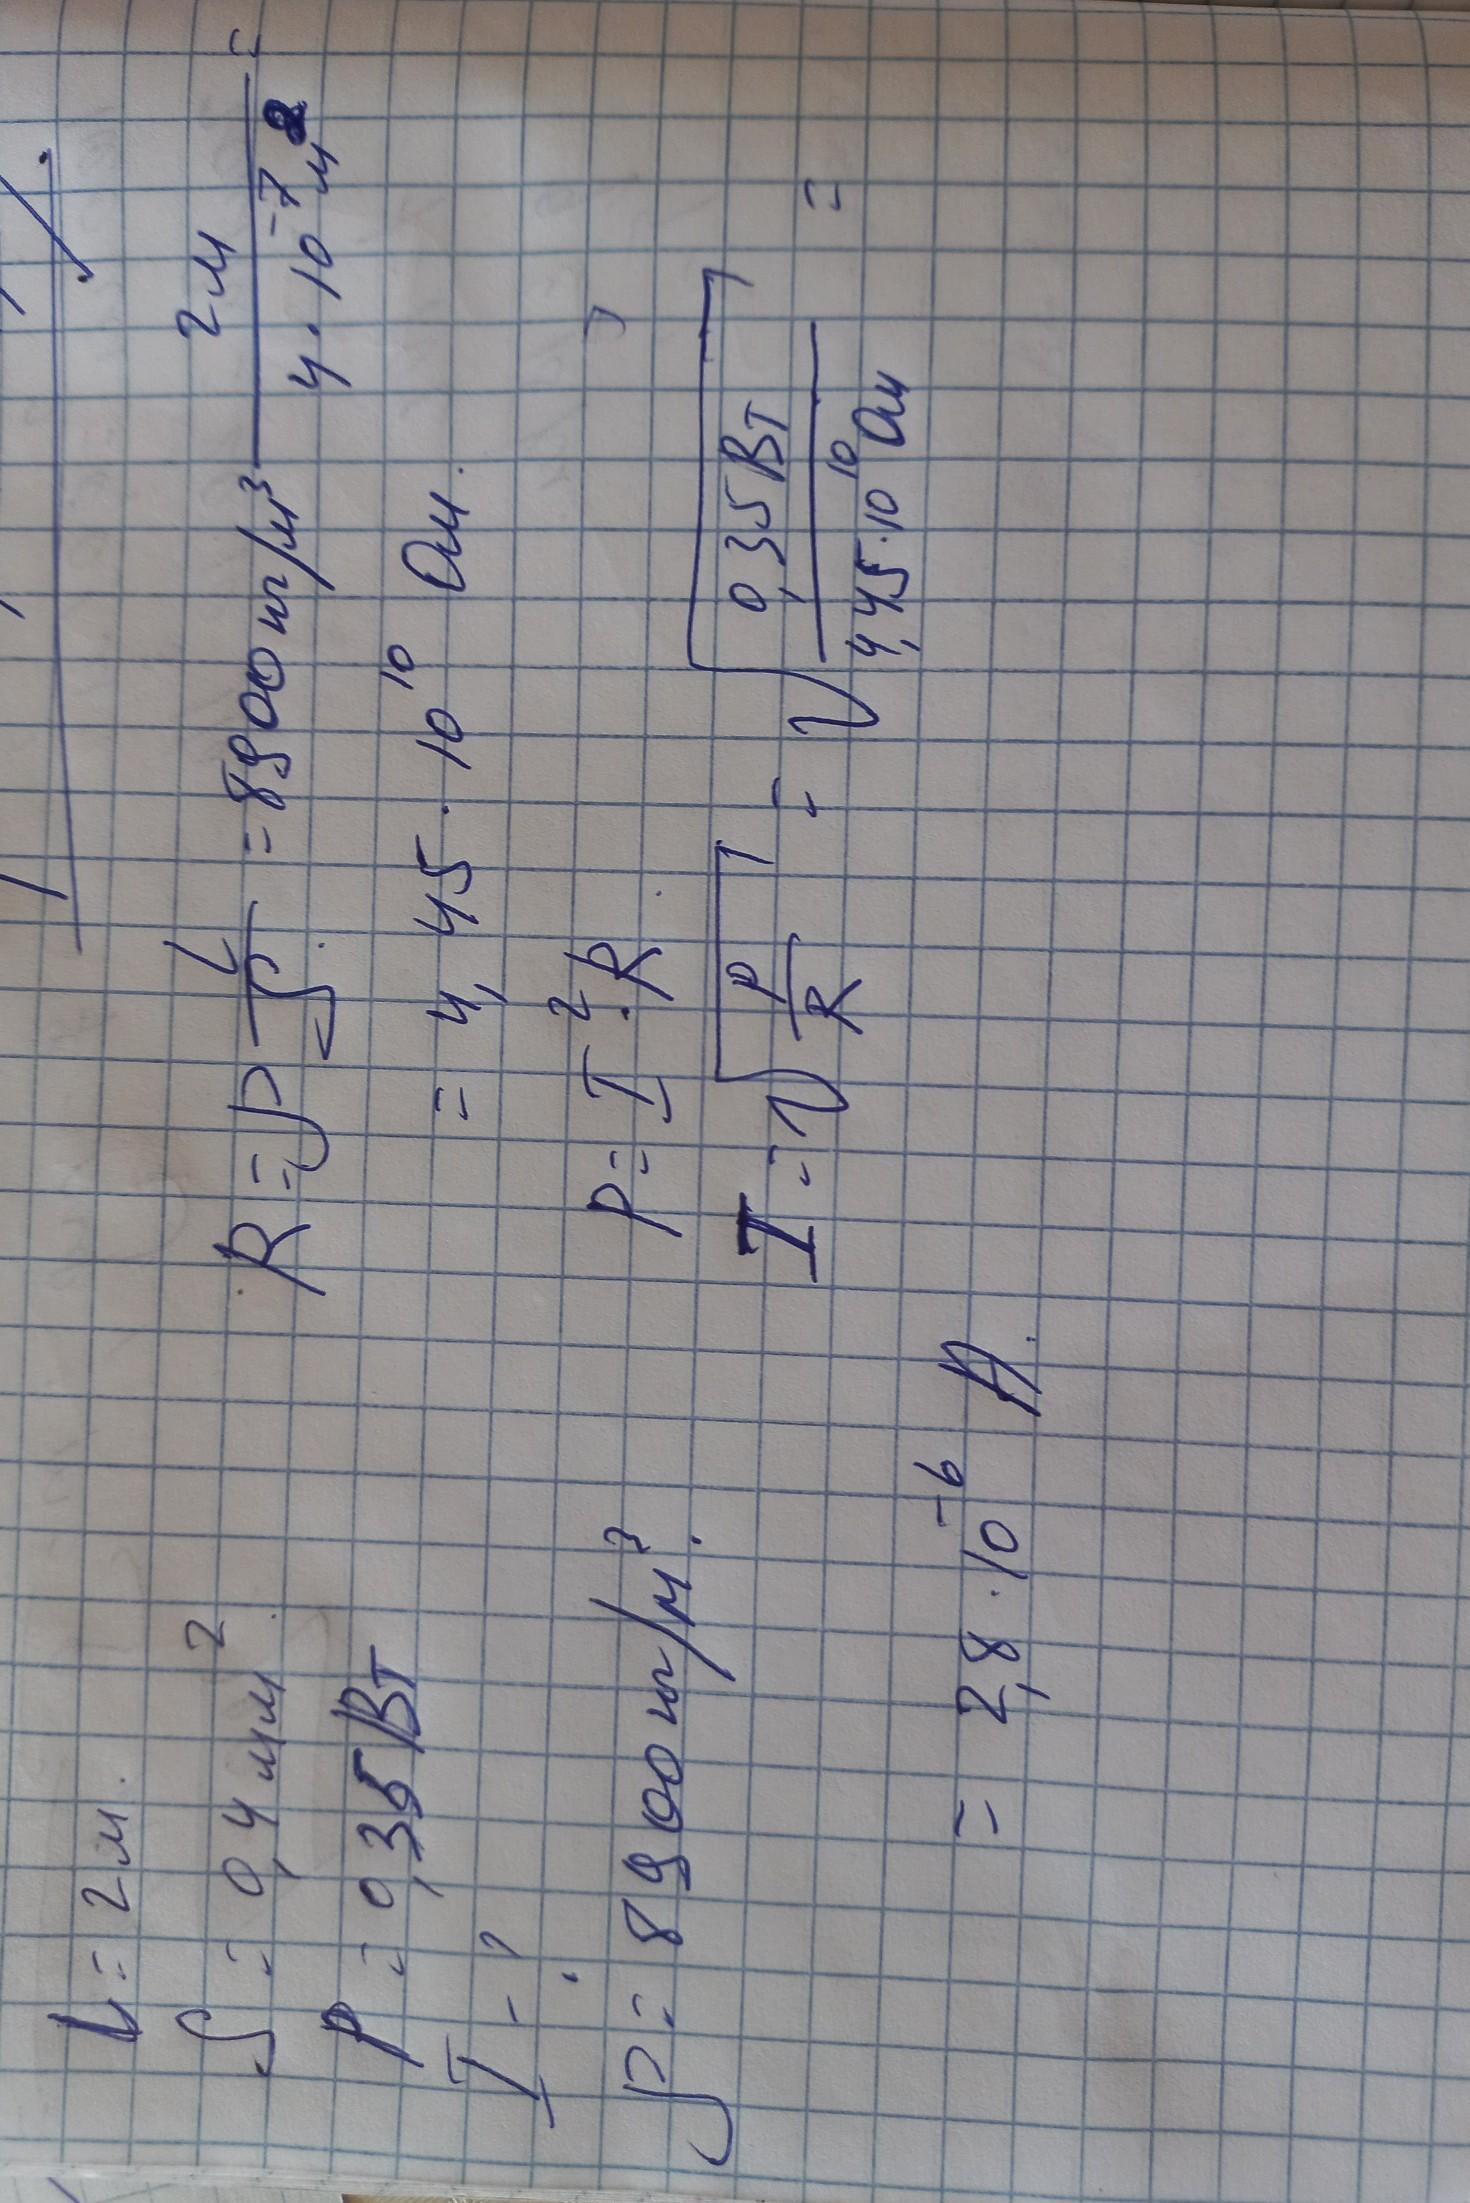 L = 2 м.
S = 0,4 мм²
P = 0,35 Вт
I - ?
ρ = 8900 кг/м³.
R = ρ L/S = 8900 кг/м³ 2 м / 4·10⁻⁷ м² =
= 4,45·10¹⁰ Ом.
P = I²·R.
I = √(P/R) = √(0,35 Вт / 4,45·10¹⁰ Ом) =
= 2,8·10⁻⁶ А.